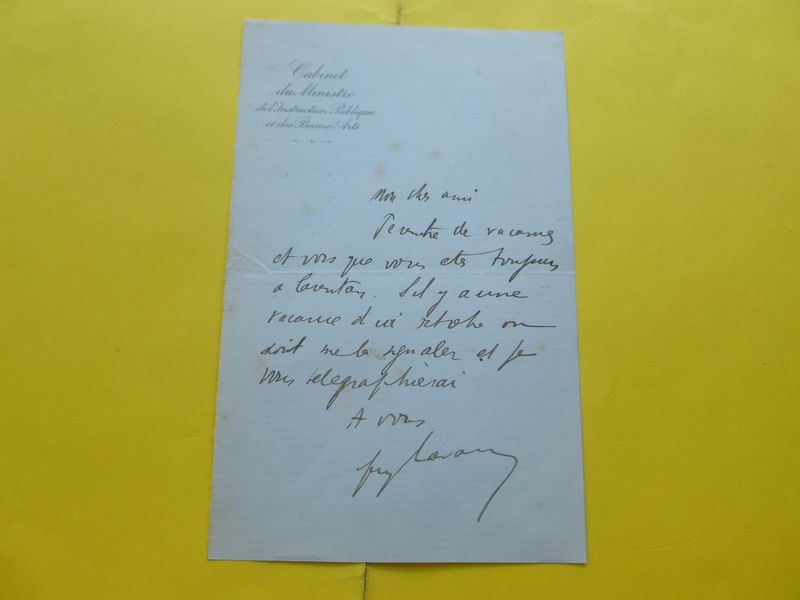 Cabinet
du Ministre
de l'Instruction Publique
et des Beaux-Arts
Mon cher ami
Je rentre de vacances
et vois que vous etes toujours
a Carentan. S'il y a une
vacance d'ici on
doit me la signaler et je
vous telegraphierai
A vous